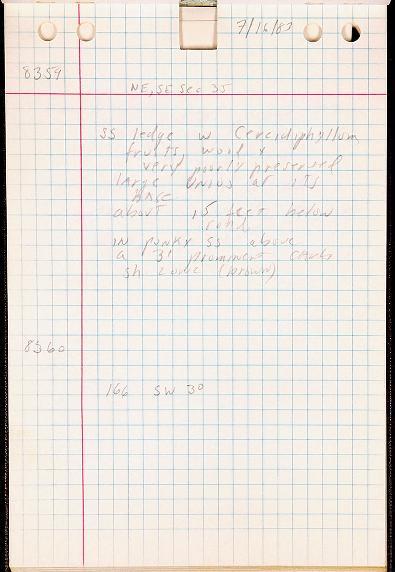 7/16/83
8359
NE, SE Sec 35
SS ledge w Cercidiphyllum
fruits, wood &
very poorly preserved
large Unios at its
base
about 15 feet below
road
in punky SS above
a 3' prominent carb
sh zone (brown)
8360
166 SW 30